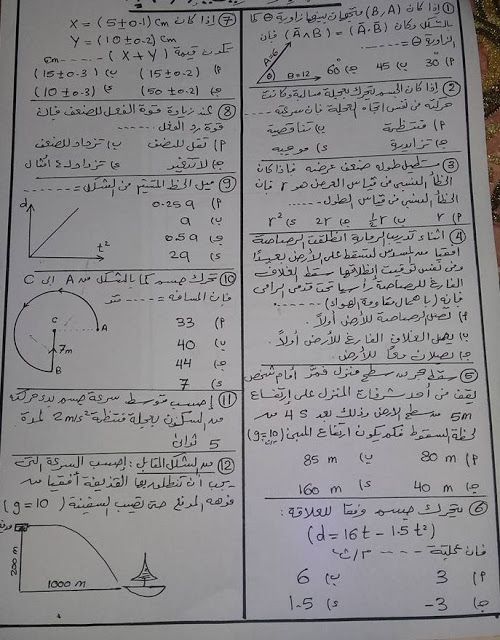 ① إذا كان (A, B) متجهان بينهما زاوية θ كما
بالشكل وكان (A̅∧B̅) = (A̅·B̅) فإن
الزاوية θ = ......
A=6
θ
B=12
أ) 30 ب) 45 ج) 60°
② إذا كان الجسم يتحرك بعجلة سالبة وكانت
حركته من نفس اتجاه العجلة فان سرعته ......
أ) منتظمة ب) تناقصية
ج) تزايدية د) موجبه
③ مستطيل طوله ضعف عرضه فاذا كان
الخطأ النسبي في قياس العرض هو r فإن
الخطأ النسبي في قياس الطول ......
أ) r ب) ½r ج) 2r د) r²
④ اثناء تدريب الرماية انطلقت الرصاصة
أفقيا من المسدس لتسقط على الأرض بعيدًا
وفى نفس توقيت انطلاقها سقط الغلاف
الفارغ للرصاصة رأسيا تحت قدمى الرامى
فإنه (بإهمال مقاومة الهواء) ------
أ) تصل الرصاصة للأرض أولاً.
ب) يصل الغلاف الفارغ للأرض أولاً.
ج) يصلان معًا للأرض.
⑤ سقط حجر من سطح منزل فمرَّ أمام شخص
يقف من أحد شرفات المنزل على إرتفاع
5m من سطح الارض وذلك بعد 4s من
لحظة السقوط فكم يكون ارتفاع المبنى (g=10)
أ) 80 m ب) 85 m
ج) 40 m د) 160 m
⑥ يتحرك جسم وفقا للعلاقة :
(d = 16t - 1.5t²)
فان عجلته ---- م/ث²
أ) 3 ب) 6
ج) -3 د) 1.5
⑦ إذا كان X = (5±0.1) cm
Y = (10±0.2) cm
تكون قيمة (X+Y) ...... cm
أ) (15±0.2) ب) (15±0.3)
ج) (50±0.2) د) (10±0.3)
⑧ عند زيادة قوة الفعل للضعف فإن
قوة رد الفعل ......
أ) تقل للنصف ب) تزداد للضعف
ج) لا تتغير د) تزداد لـ 4 امثال
⑨ ميل الخط المستقيم من الشكل = ------
d
t²
أ) 0.25 g
ب) g
ج) 0.5g
د) 2g
⑩ تحرك جسم كما بالشكل من A إلى C
فإن المسافة = ------ متر
C
A
7m
B
أ) 33
ب) 40
ج) 44
د) 7
⑪ إحسب متوسط سرعة جسم بدء حركته
من السكون بعجلة منتظمة 2m/s² لمدة
5 ثوان
⑫ من الشكل المقابل : إحسب السرعة التى
يجب أن تنطلق بها القذيفة أفقيا من
فوهه المدفع حتى تصيب السفينة (g=10)
200 m
1000 m